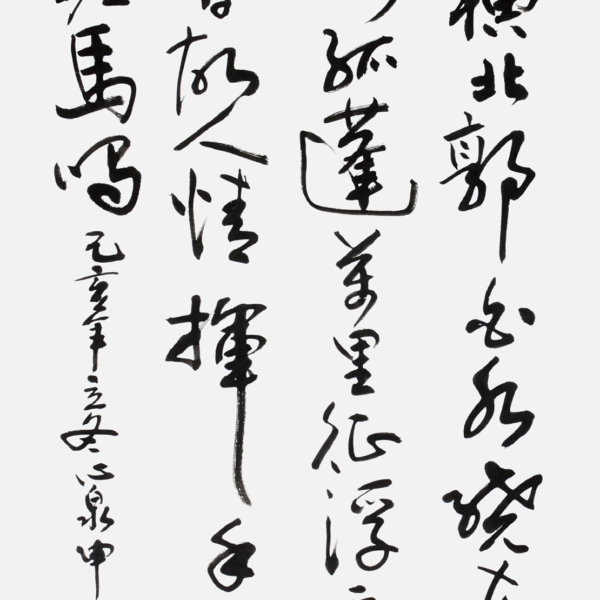 横北郭白水绕东
孤蓬万里征浮云
故人情挥手
马鸣
己亥年立冬心泉书